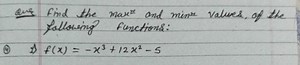 Que Find the max^m and min^m values of the
following functions:
① 1) f(x) = -x³ + 12x² - 5